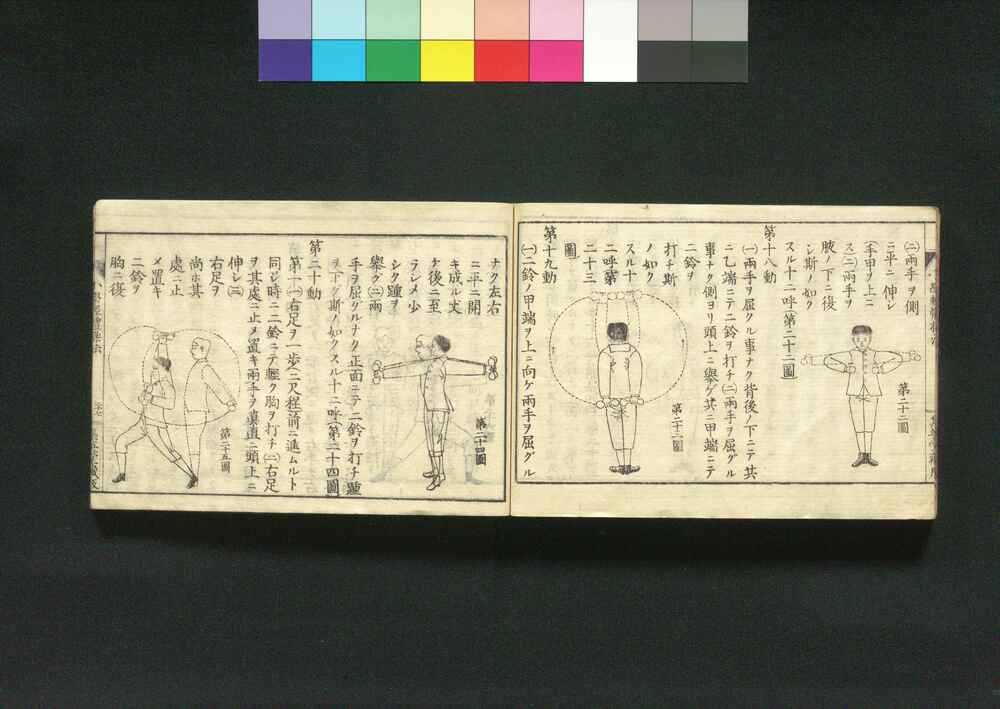 ㈡兩手ヲ側
ニ平ニ伸シ
(手甲ヲ上ニ
ス㈡兩手ヲ
腋ノ下ニ復
シ斯ノ如ク
スル十二呼(第二十二圖
第二十二圖
第十八動
㈠兩手ヲ屈クル事ナク背後ノ下ニテ其
ニ乙端ニテ二鈴ヲ打チ㈡兩手ヲ屈グル
事ナク側ヨリ頭上ニ擧ゲ其ニ甲端ニテ
二鈴ヲ
打チ斯
ノ如ク
スル十
二呼第
二十三
圖
第二十三圖
第十九動
㈠二鈴ノ甲端ヲ上ニ向ケ兩手ヲ屈グル
ナク左右
ニ平ニ開
キ成ル丈
ケ後ニ至
ラシメ少
シク踵ヲ
擧ク㈡兩
手ヲ屈グルナク正面ニテ二鈴ヲ打チ踵
ヲ下ク斯ノ如クスル十二呼(第二十四圖
第二十四圖
第二十動
第一㈠右足ヲ一歩二尺程前ニ進ムルト
同シ時ニ二鈴ニテ輕ク胸ヲ打チ㈡右足
ヲ其處ニ止メ置キ兩手ヲ眞直ニ頭上ニ
伸シ㈢
右足ヲ
尚ホ其
處ニ止
メ置キ
二鈴ヲ
胸ニ復
第二十五圖